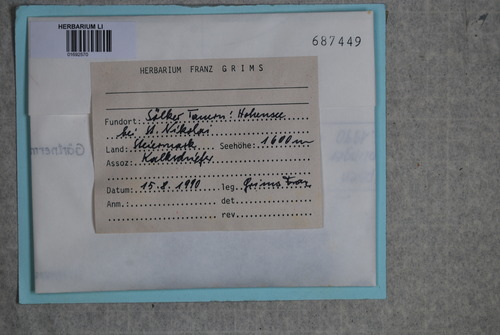 HERBARIUM LI
687449
HERBARIUM FRANZ GRIMS
Fundort: Sölker Tauern: Hohensee
bei St. Nikolai
Land: Steiermark Seehöhe: 1600 m
Assoz: Kalkschiefer
Datum: 15.8.1990 leg. Grims Franz
Anm.: det.
rev.